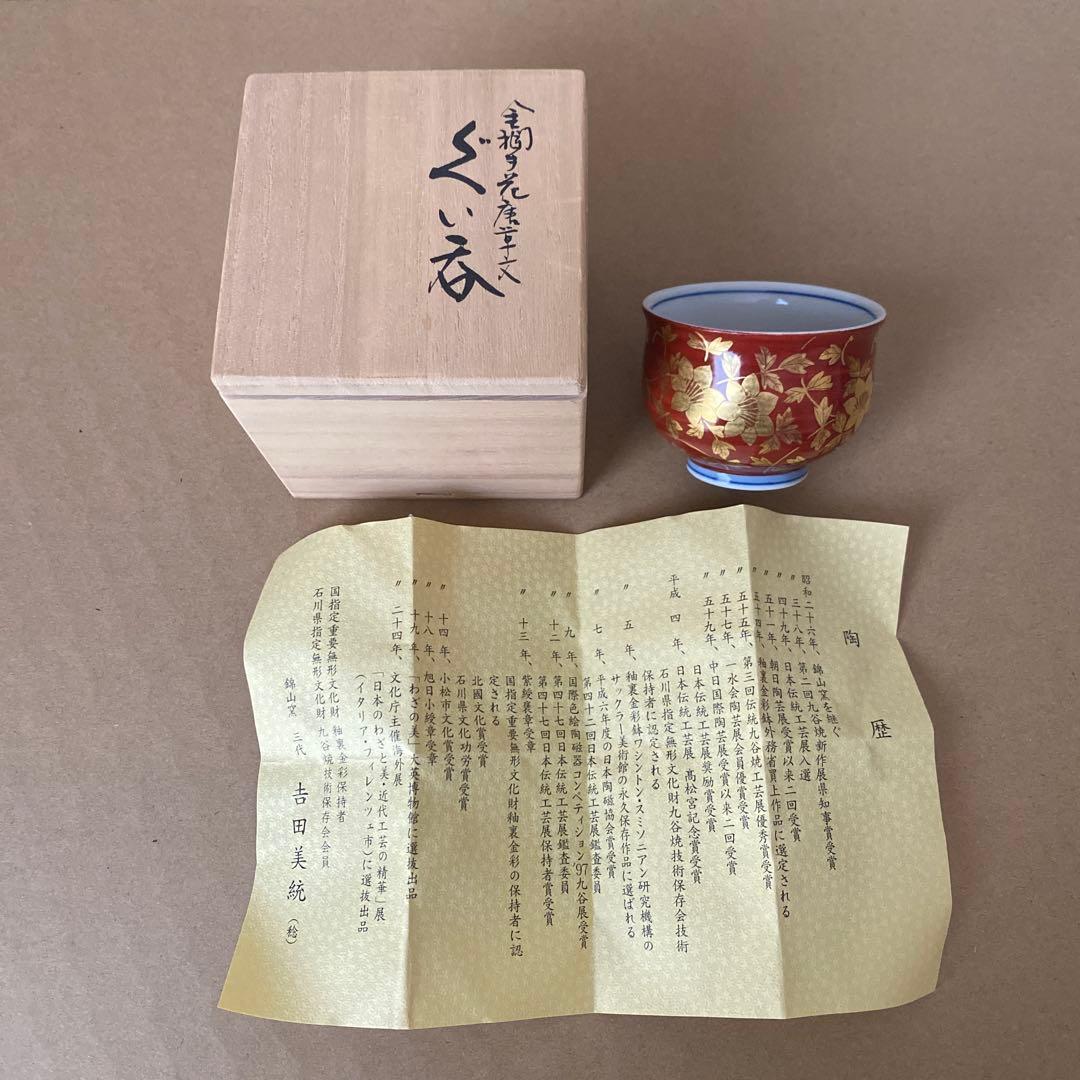 金襴手花唐草文
ぐい呑
陶歴
昭和二十六年、錦山窯を継ぐ
〃 三十八年、第二回九谷焼新作展県知事賞受賞
〃 四十九年、日本伝統工芸展入選
〃 五十一年、朝日陶芸展受賞以来二回受賞
〃 五十四年、釉裏金彩鉢外務省買上作品に選定される
〃 五十五年、第三回伝統九谷焼工芸展優秀賞受賞
〃 五十七年、一水会陶芸展会員優賞受賞
〃 五十九年、中日国際陶芸展受賞以来二回受賞
日本伝統工芸展奨励賞受賞
平成 四年、日本伝統工芸展 高松宮記念賞受賞
石川県指定無形文化財九谷焼技術保存会技術
保持者に認定される
〃 五年、釉裏金彩鉢ワシントン・スミソニアン研究機構の
サックラー美術館の永久保存作品に選ばれる
〃 七年、平成六年度の日本陶磁協会賞受賞
第四十二回日本伝統工芸展鑑査委員
〃 九年、国際色絵陶磁器コンペティション'97九谷展受賞
〃 十二年、第四十七回日本伝統工芸展鑑査委員
第四十七回日本伝統工芸展保持者賞受賞
〃 十三年、紫綬褒章受章
国指定重要無形文化財釉裏金彩の保持者に認
定される
北國文化賞受賞
石川県文化功労賞受賞
〃 十四年、小松市文化賞受賞
〃 十八年、旭日小綬章受章
〃 十九年、「わざの美」大英博物館に選抜出品
〃 二十四年、文化庁主催海外展
「日本のわざと美-近代工芸の精華」展
(イタリア・フィレンツェ市)に選抜出品
国指定重要無形文化財 釉裏金彩保持者
石川県指定無形文化財 九谷焼技術保存会会員
錦山窯 三代 吉田美統(稔)